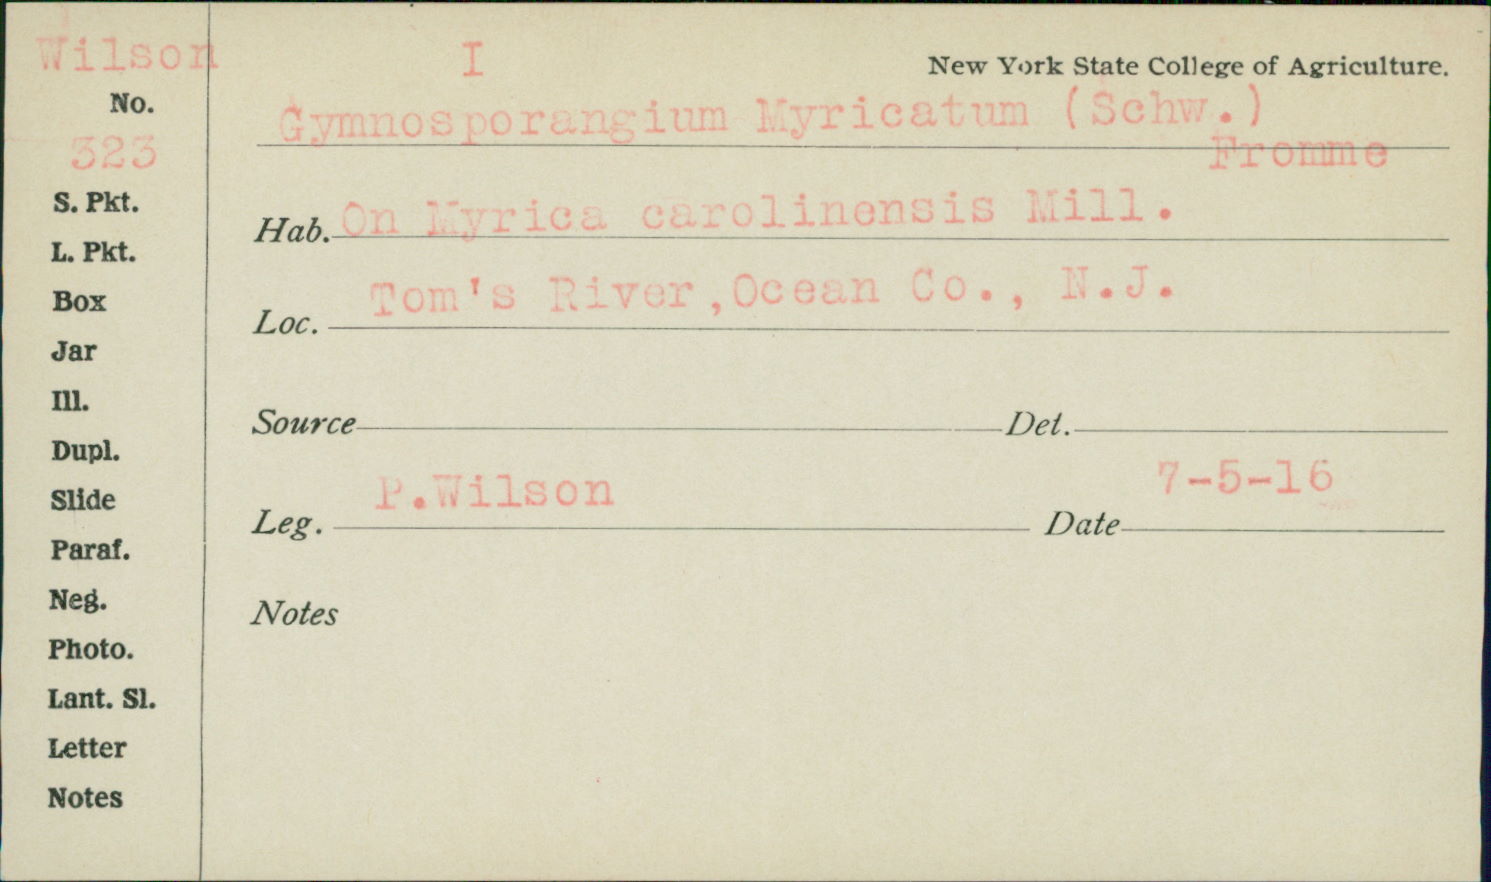 Wilson
No.
323
S. Pkt.
L. Pkt.
Box
Jar
Ill.
Dupl.
Slide
Paraf.
Neg.
Photo.
Lant. Sl.
Letter
Notes
I
New York State College of Agriculture.
Gymnosporangium Myricatum (Schw.)
Fromme
Hab. On Myrica carolinensis Mill.
Loc. Tom's River, Ocean Co., N.J.
Source Det.
Leg. P.Wilson Date 7-5-16
Notes